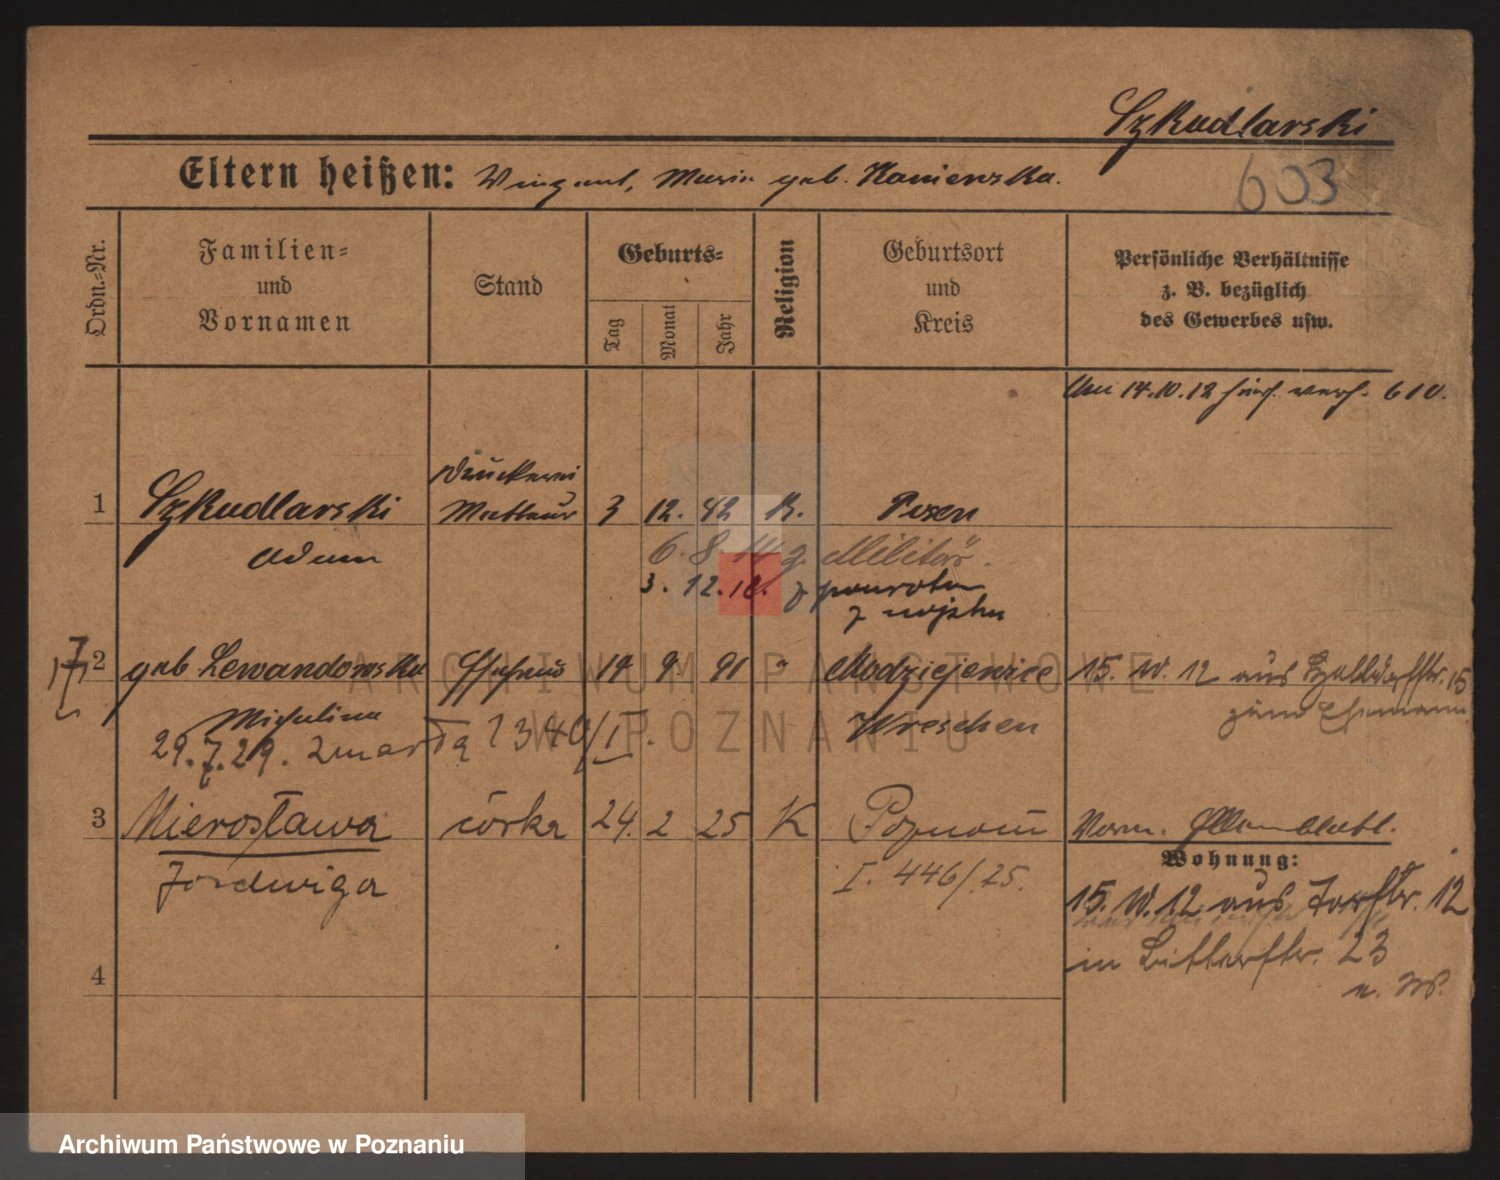 Szkudlarski
603
Eltern heißen: Vinzent, Maria geb. Kanierska.
Ordn.-Nr.
Familien- und Vornamen
Stand
Geburts-
Tag
Monat
Jahr
Religion
Geburtsort und Kreis
Persönliche Verhältnisse z. B. bezüglich des Gewerbes usw.
Am 14.10.12 verh. 610.
Druckerei
1 Szkudlarski 3 12. 82 K. Posen
Adam
6. 8. 14 z. Militär.
3. 12. 18. z powrotem
z wojska
2 geb Lewandowska Ehefrau 14 9. 91 " Modziejewice 15. IV. 12 aus 15
Michalina Wreschen zum Ehemann
29.7.29. zmarła 1340/I.
3 Mierosława córka 24. 2 25 K Poznań Vorm.
Jadwiga I. 446/25.
Wohnung:
15. IV. 12 aus Torfstr. 12
in Bitterstr. 23
4
ARCHIWUM PAŃSTWOWE
W POZNANIU
Archiwum Państwowe w Poznaniu